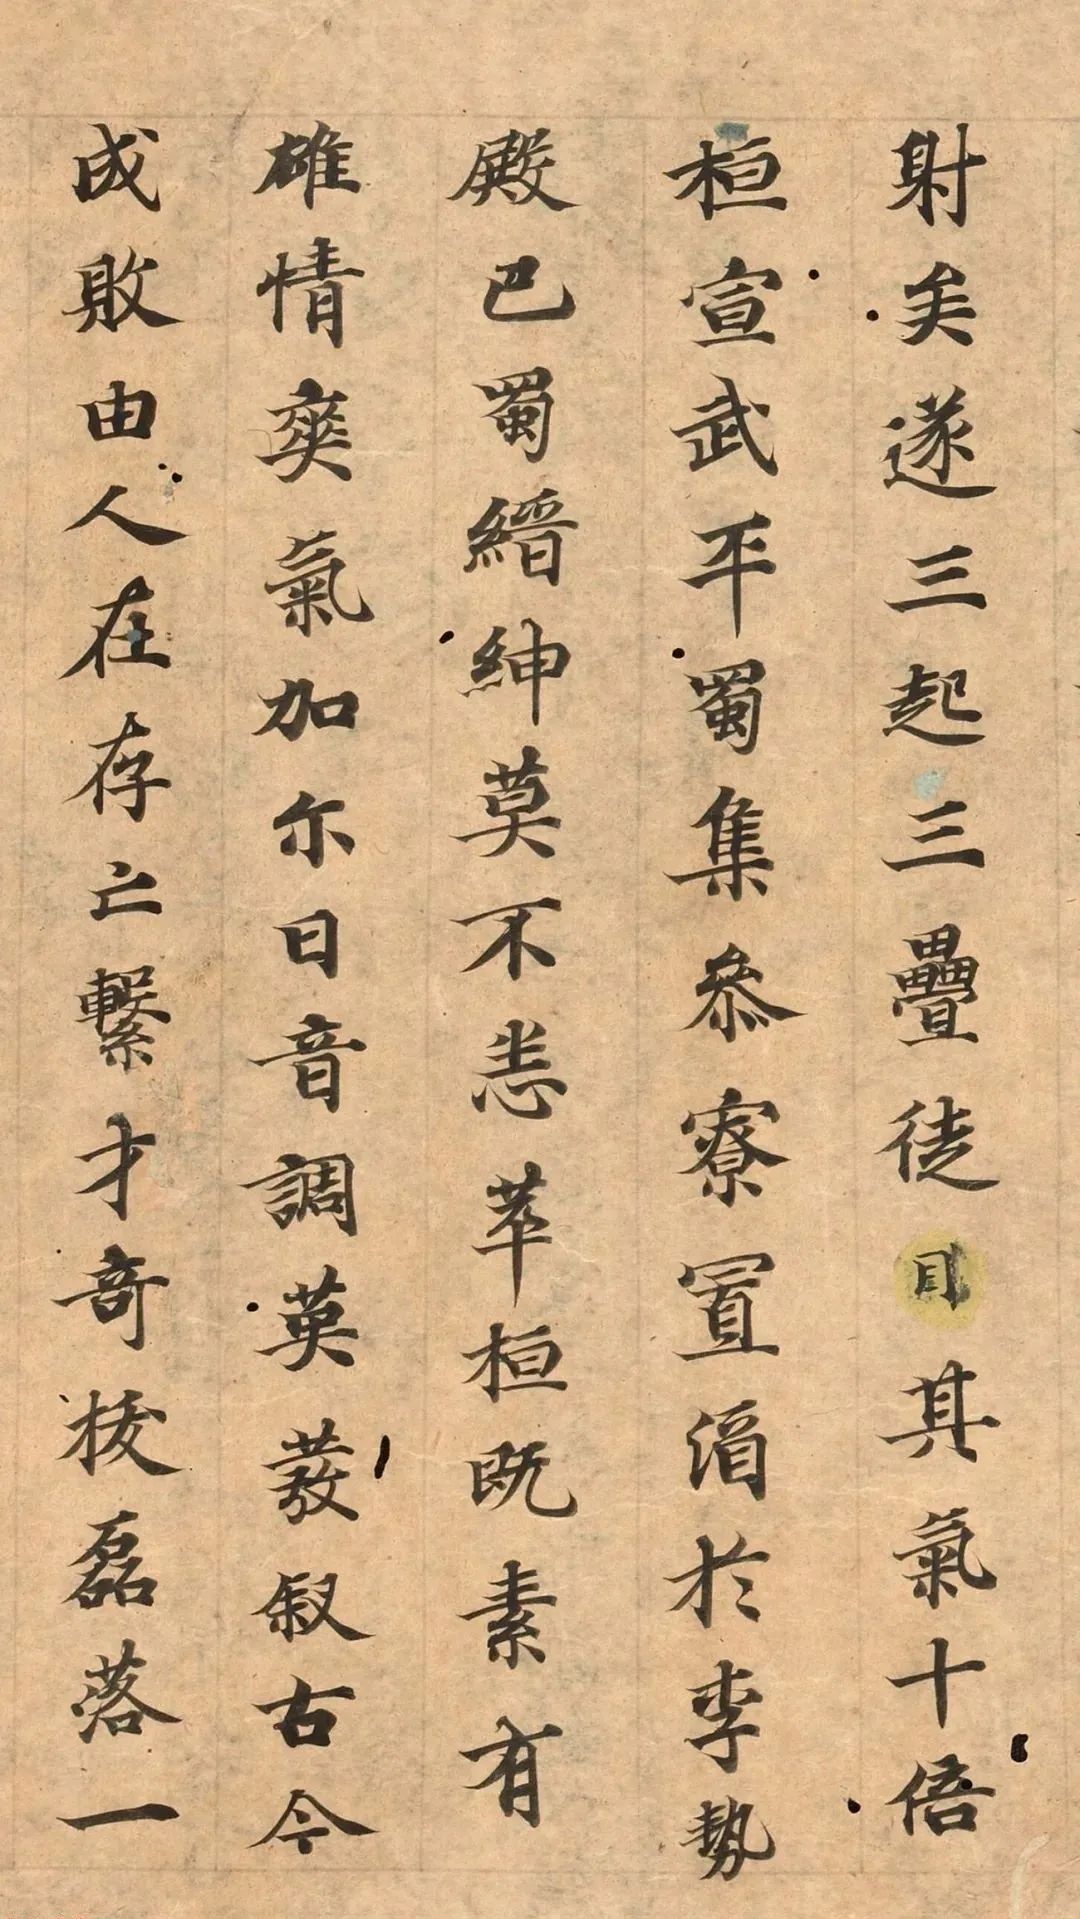 射矣遂三起三疊徒目其氣十倍
桓宣武平蜀集叅寮置酒於李勢
殿巴蜀縉紳莫不悉萃桓既素有
雄情爽氣加尔日音調英發叙古今
成敗由人在存亡繫才奇拔磊落一